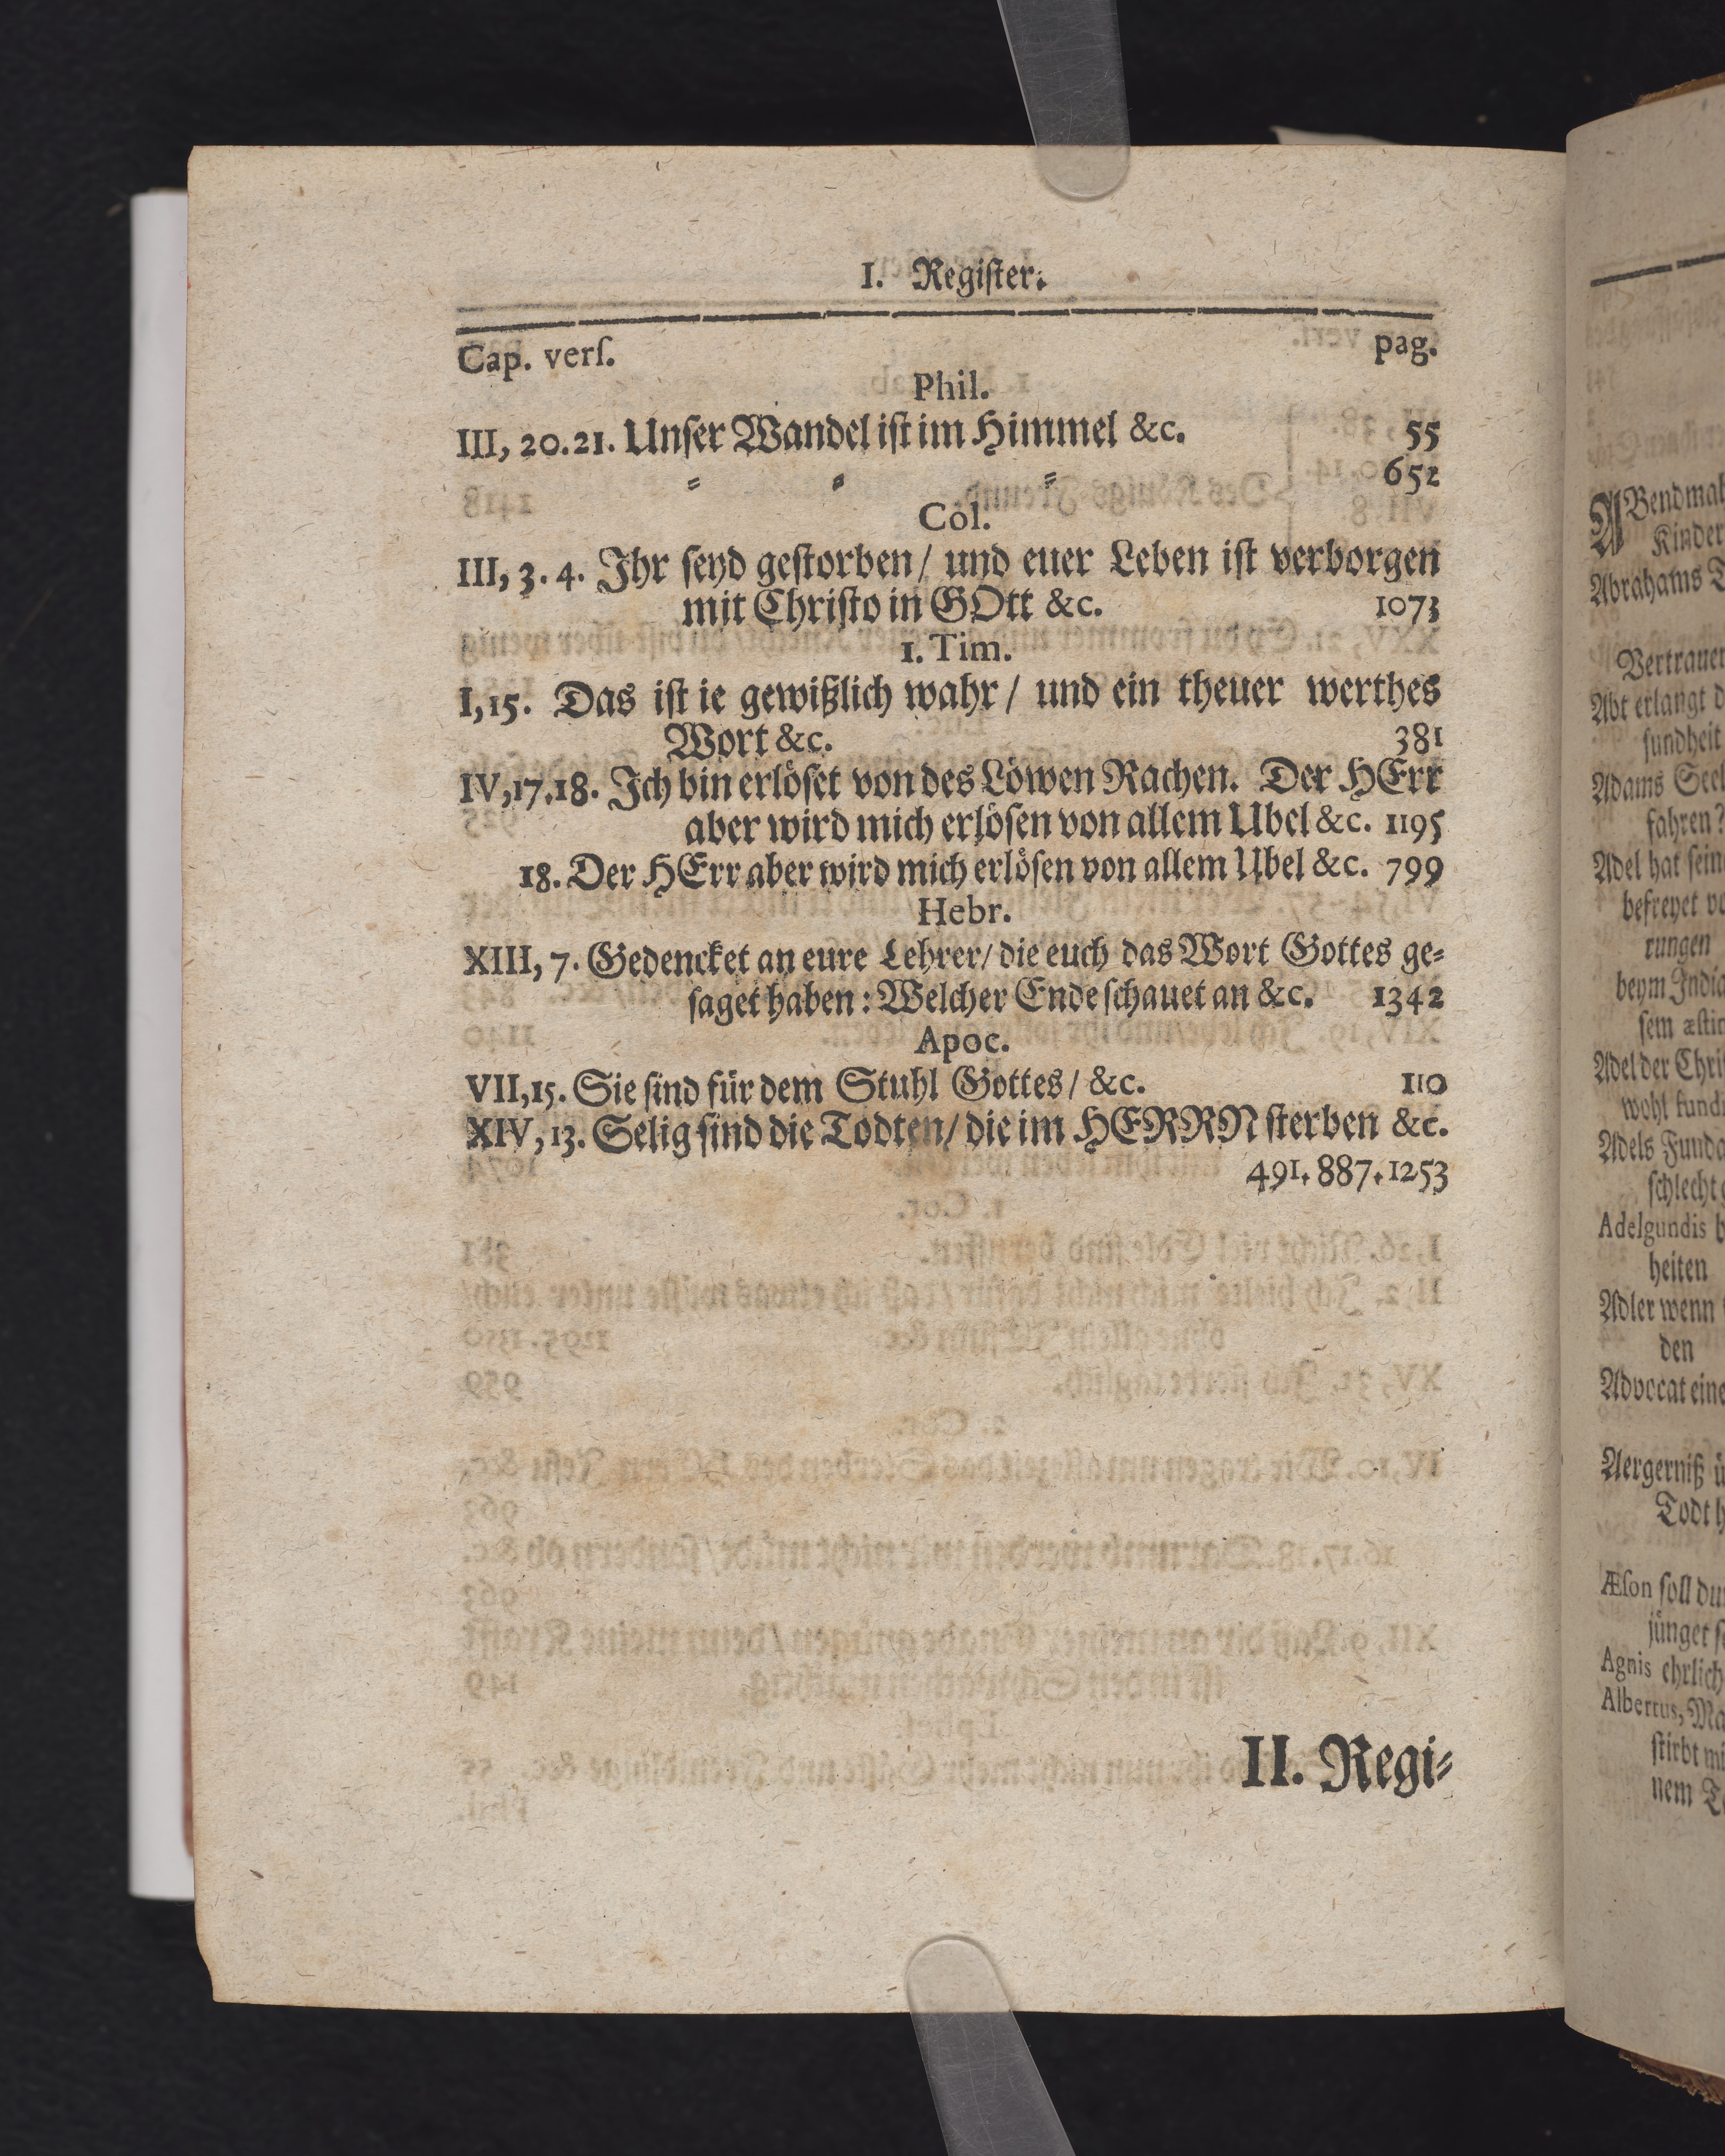 I. Register.
Cap. verſ. pag.
Phil.
III, 20.21. Unſer Wandel iſt im Himmel &c. 55
⸗ ⸗ ⸗ 652
Col.
III, 3. 4. Jhr ſeyd geſtorben/ und euer Leben iſt verborgen
mit Chriſto in GOtt &c. 1073
1. Tim.
I, 15. Das iſt ie gewißlich wahr/ und ein theuer werthes
Wort &c. 381
IV, 17.18. Jch bin erlöſet von des Löwen Rachen. Der HErr
aber wird mich erlöſen von allem Ubel &c. 1195
18. Der HErr aber wird mich erlöſen von allem Ubel &c. 799
Hebr.
XIII, 7. Gedencket an eure Lehrer/ die euch das Wort Gottes ge⸗
ſaget haben: Welcher Ende ſchauet an &c. 1342
Apoc.
VII, 15. Sie ſind für dem Stuhl Gottes/ &c. 110
XIV, 13. Selig ſind die Todten/ die im HERRN ſterben &c.
491. 887. 1253
II. Regi⸗
ABendmah
Kinder
Abrahams
Vertrauen
Abt erlangt
ſundheit
Adams Seel
fahren?
Adel hat ſein
befreyet
rungen
beym
ſem
Adel der Chri
wohl
Adels Funda
ſchlecht
Adelgundis
heiten
Adler wenn
den
Advocat eine
Aergerniß
Todt
Æſon ſoll
jünget
Agnis ehrlich
Albertus, Ma
ſtirbt
nem